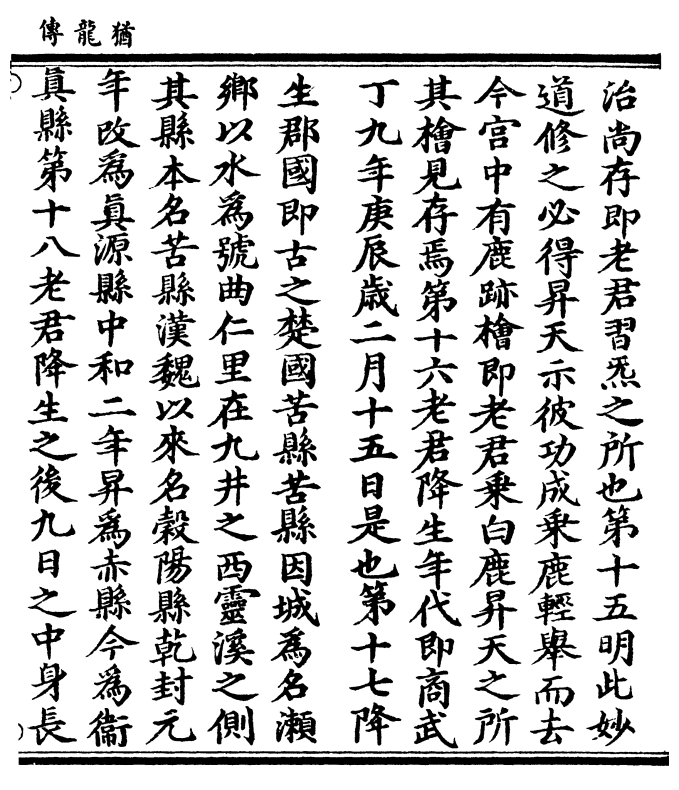 猶龍傳
治尚存即老君習炁之所也第十五明此妙
道修之必得昇天示彼功成乗鹿輕舉而去
今宫中有鹿跡檜即老君乗白鹿昇天之所
其檜見存焉第十六老君降生年代即商武
丁九年庚辰歳二月十五日是也第十七降
生郡國即古之楚國苦縣苦縣因城爲名瀬
鄉以水爲號曲仁里在九井之西靈溪之側
其縣本名苦縣漢魏以來名穀陽縣乾封元
年改爲眞源縣中和二年昇爲赤縣今爲衞
眞縣第十八老君降生之後九日之中身長